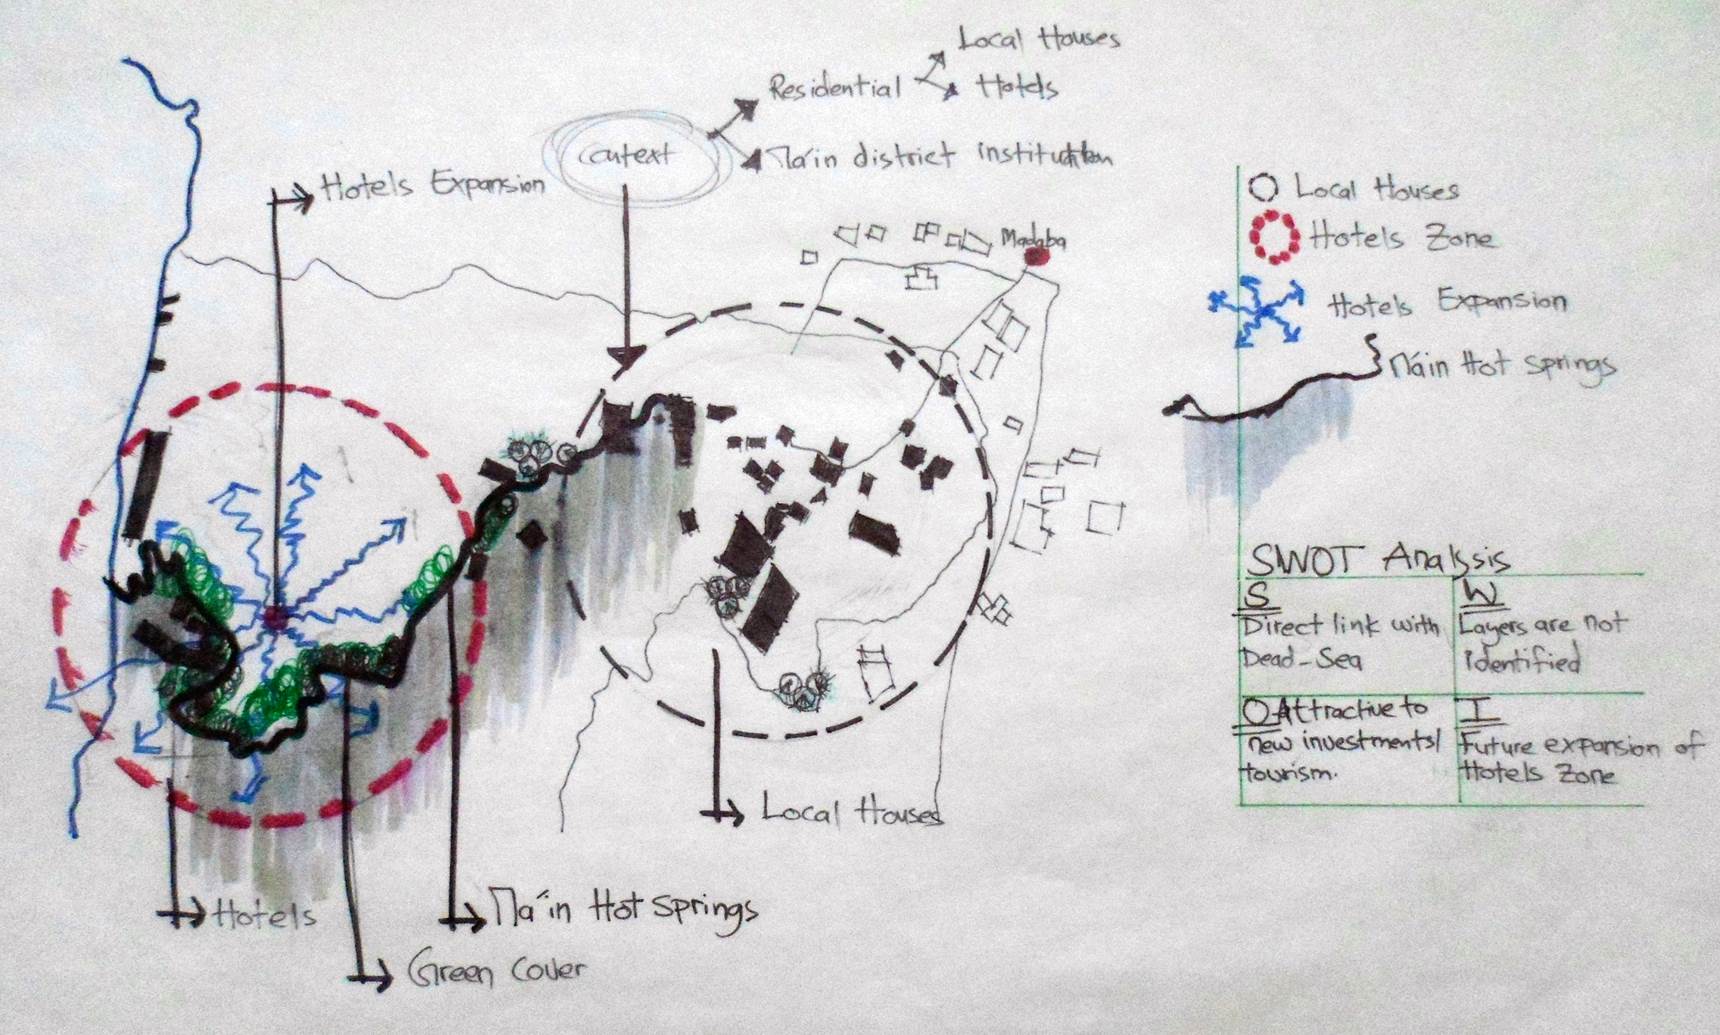 Local Houses
Residential
Hotels
Context
Main district institution
Hotels Expansion
Madaba
Local Houses
Hotels Zone
Hotels Expansion
Main Hot Springs
SWOT Analysis
S
Direct link with
Dead-Sea
W
Layers are not
identified
O Attractive to
new investments/
tourism.
T
Future expansion of
Hotels Zone
Local Houses
Main Hot Springs
Hotels
Green Cover